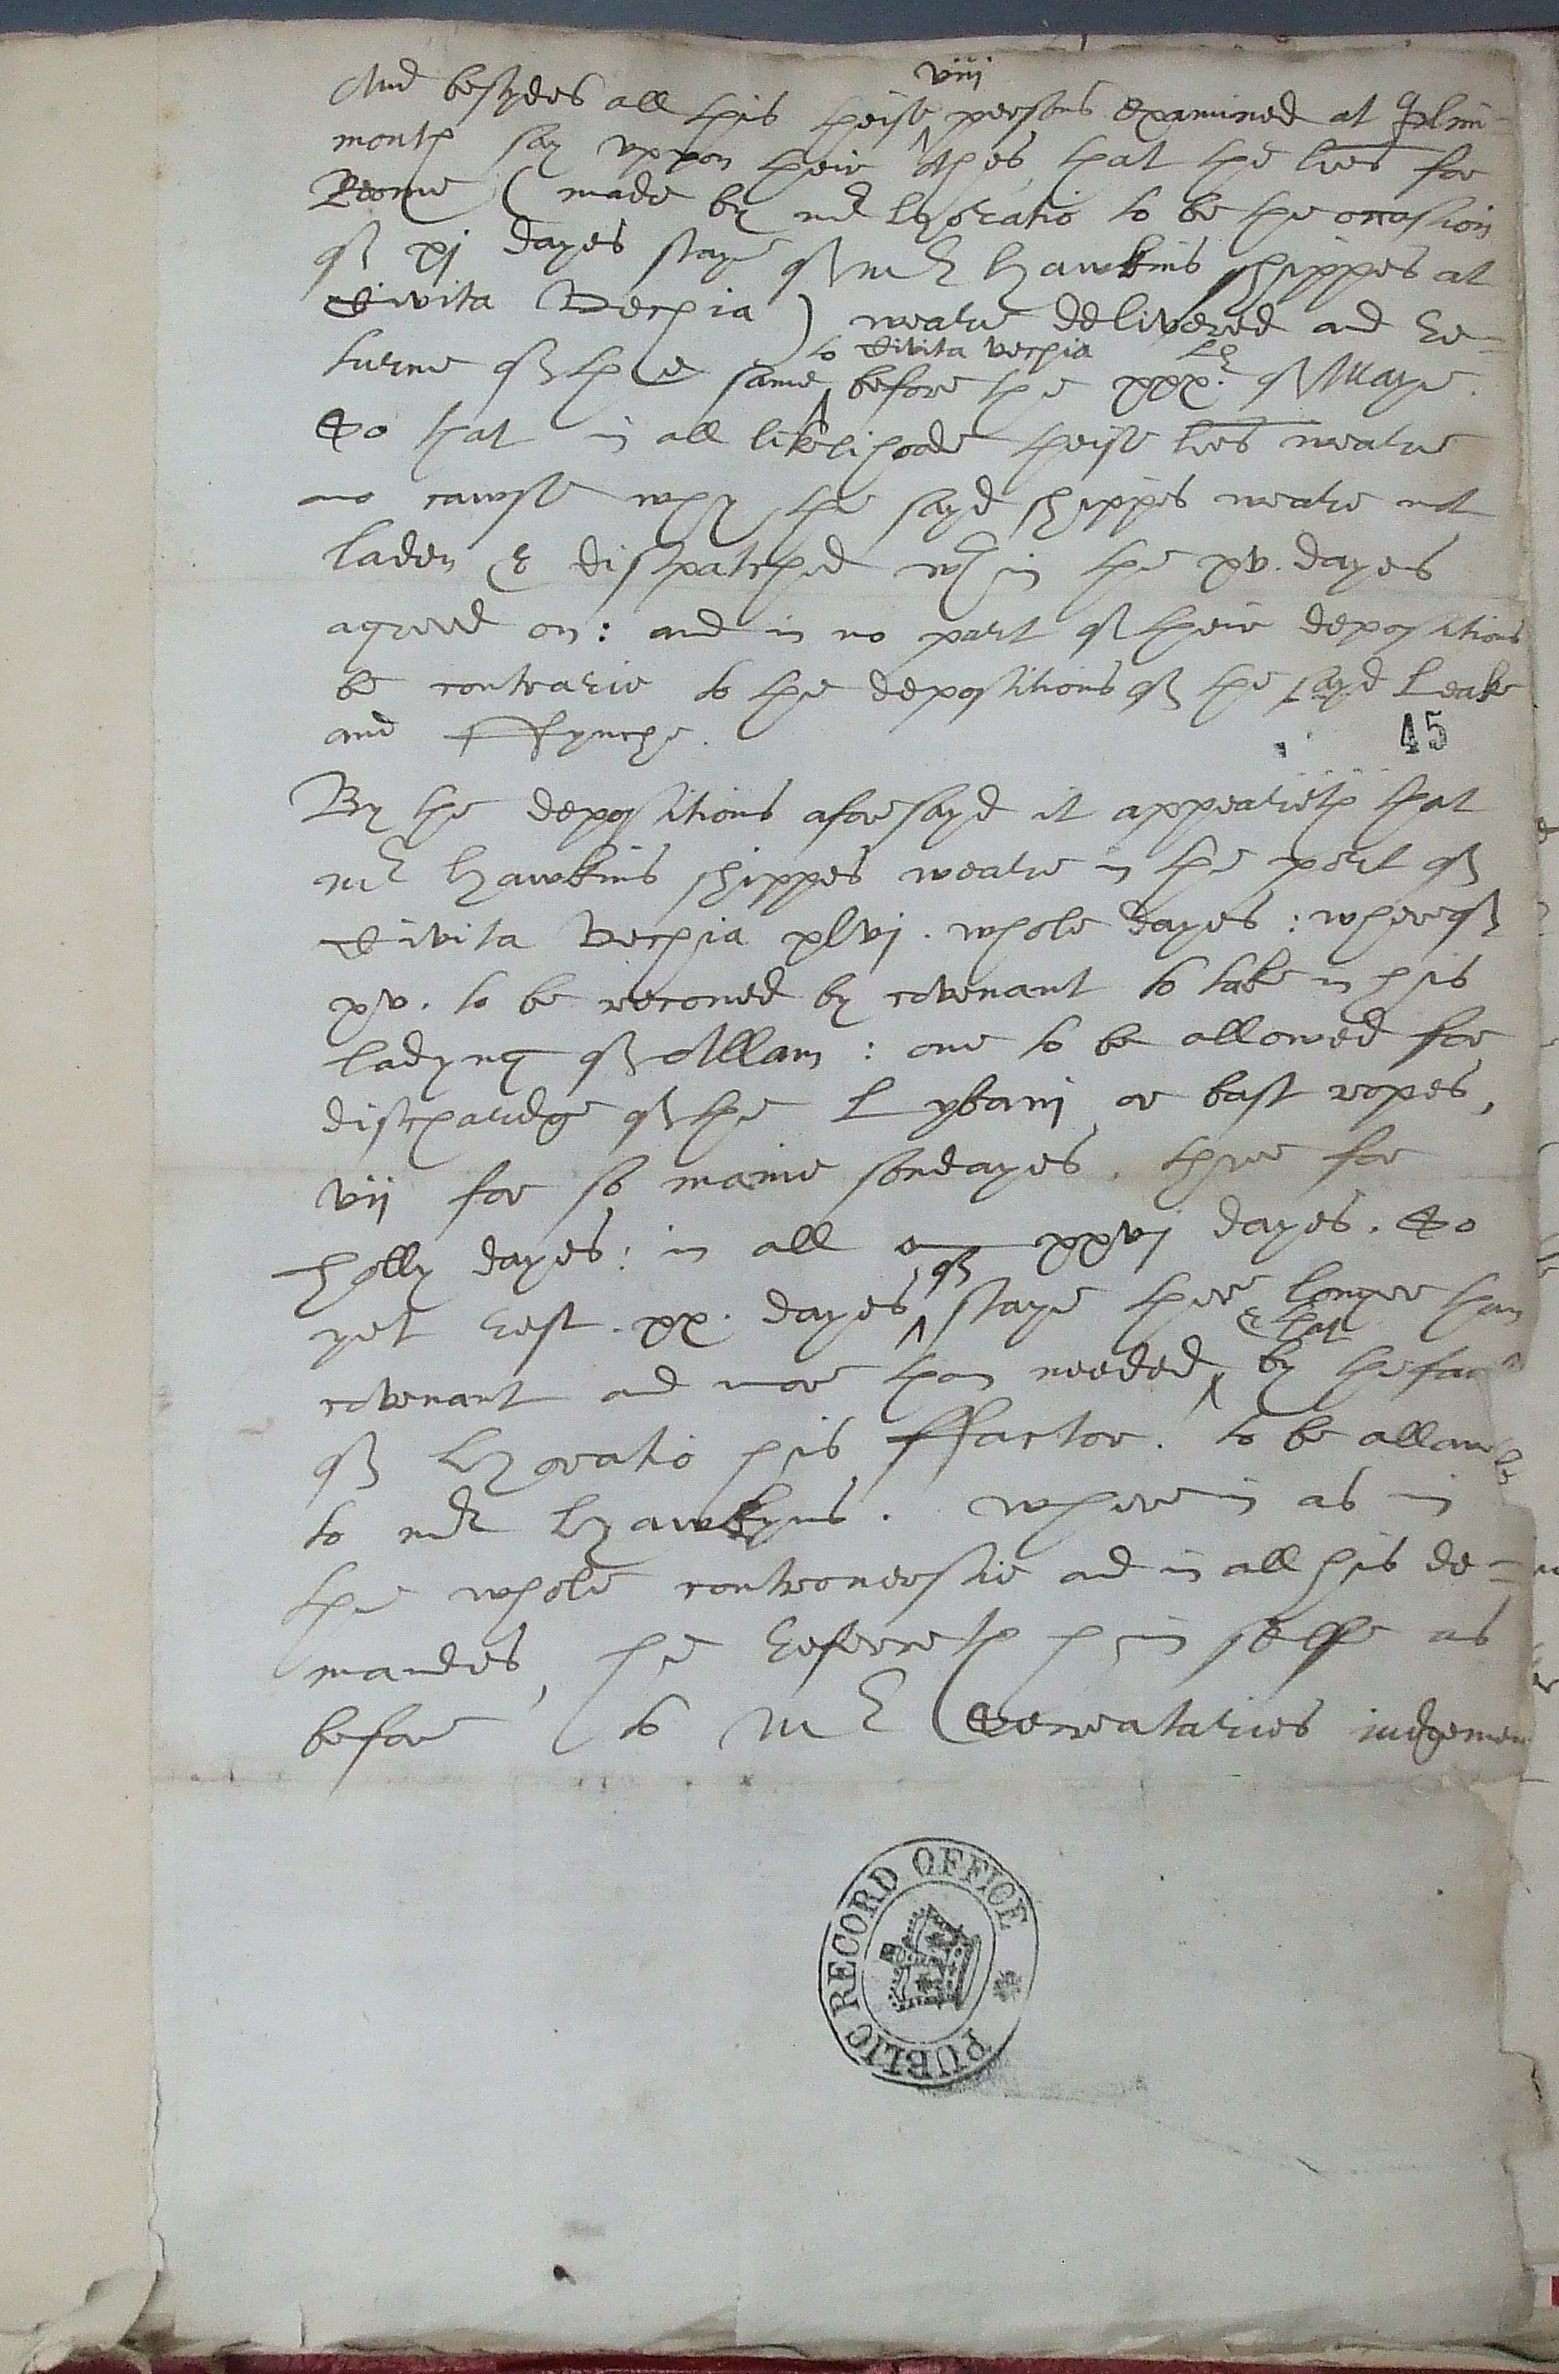 viij
And besydes all this theise ^ persons examined at Plim=
mouth say vppon their othes, that the lres for
Roome ( made by mr Horatio to be the occasion
of xj dayes staye of mr Hawkins shippes at
Civita Vechia ) weare delivered and re=
to Civita vechia th
turne of the same ^ before the xxx. of Maye.
So that in all likelihoode theise lres weare
no cawse why the sayd shippes weare not
laden & dispatched wthin the xv. dayes
agreed on : and in no part of their depositions
be contrarie to the depositions of the sayd Leake
and ffynche.
45
By the depositions aforesayd it appearith that
mr Hawkins shippes weare in the port of
Civita Vechia xlvj. whole dayes : whereof
xv. to be reconed by covenant to take in his
ladyng of Allam : one to be allowed for
discharidge of the Lybani or bast ropes,
vij for so manie sondayes. three for
holly dayes : in all xxvj dayes. So
of
yet rest. xx. dayes ^ staye there longer than
& that
covenant and more than needed ^ by the fau
of Horatio his ffactor. to be allow
to mr Hawkyns. wherein as in
the whole controversie and in all his de=
mandes, he referreth him selffe as
before to Mr Secreataries iudgemen
PUBLIC RECORD OFFICE